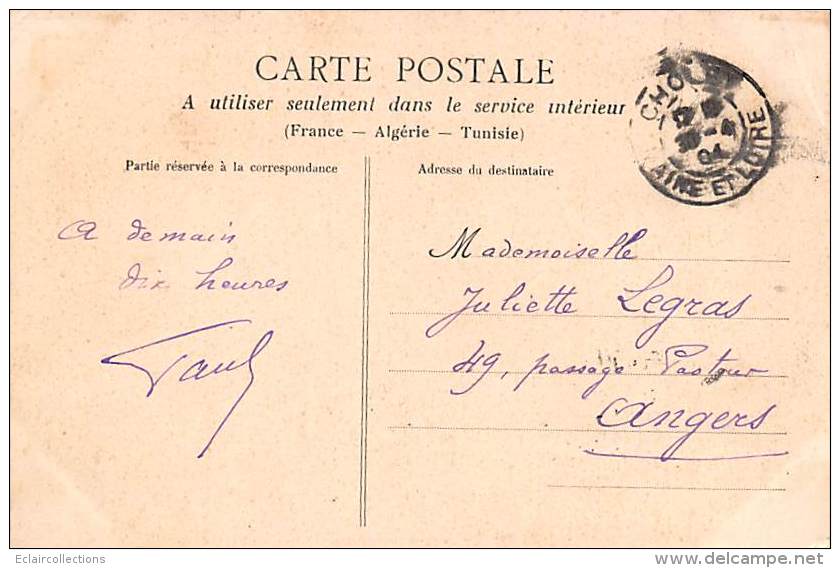 CARTE POSTALE
A utiliser seulement dans le service intérieur
(France — Algérie — Tunisie)
Partie réservée à la correspondance
Adresse du destinataire
CHO
04
AINE ET LOIRE
A demain
dix heures
Paul
Mademoiselle
Juliette Legras
49, passage Pasteur
Angers
Eclaircollections
delcampe.net